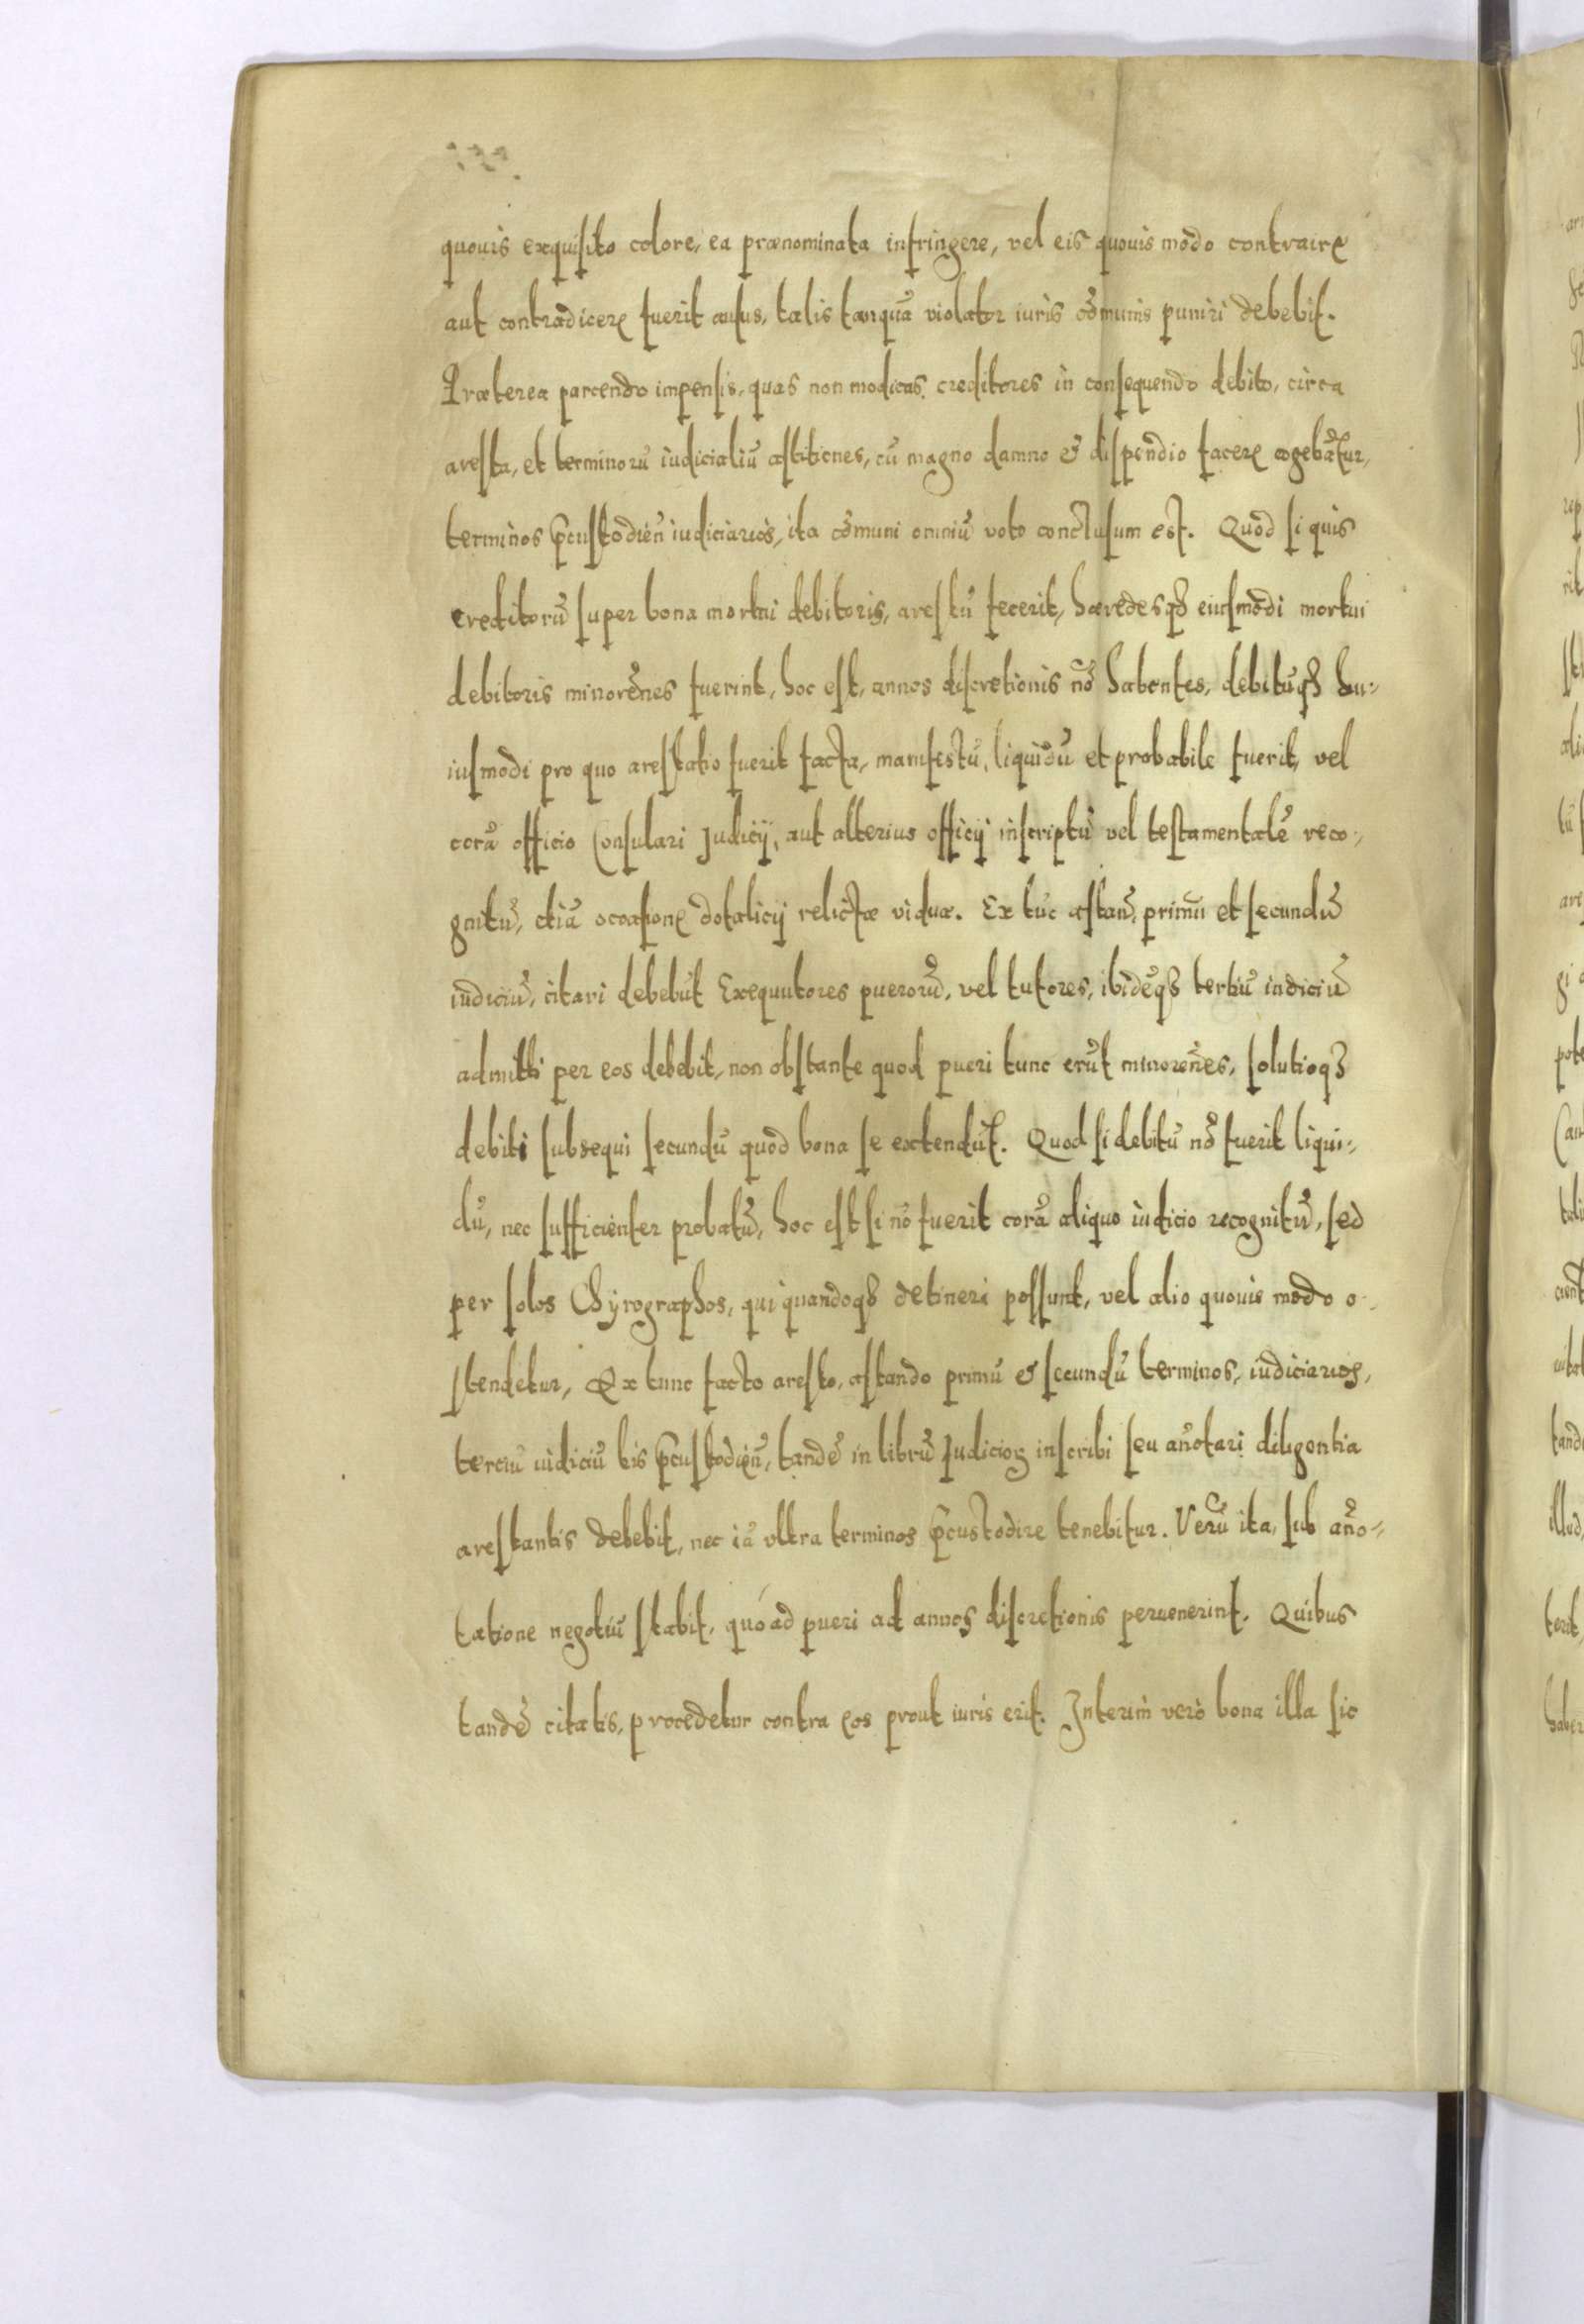 quouis exquisito colore, ea prænominata infringere, vel eis quouis modo contraire
aut contradicere fuerit ausus, talis tanquā violator iuris cōmunis puniri debebit.
Præterea parcendo impensis, quas non modicas creditores in consequendo debito, circa
aresta, et terminorū iudicialiū astitiones, cū magno damno & dispendio facere cogebātur,
terminos p̄custodieñ iudiciarios, ita cōmuni omniū voto conclusum est. Quod si quis
creditorū super bona mortui debitoris, arestū fecerit, hæredesq₃ eiusmodi mortui
debitoris minorēnes fuerint, hoc est, annos discretionis nō habentes, debitūq₃ hu:
iusmodi pro quo arestatio fuerit facta, manifestū, liquidū et probabile fuerit, vel
corā officio Consulari Judicij, aut alterius officij inscriptū vel testamentalē reco:
gnitū, etiā occasione dotalicij relictæ viduæ. Ex tūc astañ, primū et secundū
iudiciū, citari debebūt Exequutores puerorū, vel tutores, ibidēq₃ tertiū iudiciū
admitti per eos debebit, non obstante quod pueri tunc erūt minorēnes, solutioq₃
debiti subsequi secundū quod bona se extendūt. Quod si debitū nō fuerit liqui:
dū, nec sufficienter probatū, hoc est si nō fuerit corā aliquo iudicio recognitū, sed
per solos Chyrographos, qui quandoq₃ detineri possunt, vel alio quouis modo o:
stendetur, Ex tunc facto aresto, astando primū & secundū terminos, iudiciarios,
terciū iudiciū bis p̄custodieñ, tandē in librū Judicioꝝ inscribi seu añotari diligentia
arestantis debebit, nec iā vltra terminos p̄custodire tenebitur. Verū ita, sub año:
tatione negotiū stabit, quóad pueri ad annos discretionis peruenerint. Quibus
tandē citatis, procedetur contra eos prout iuris erit. Interim verò bona illa sic